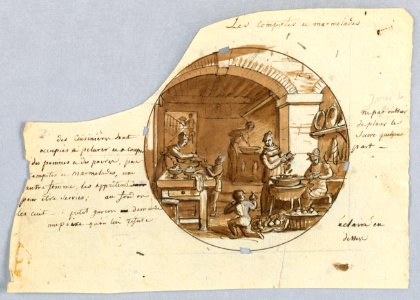 Les compotes et marmelades
ne pas oublier
de placer le
sucre quelque
part —
des cuisinières sont
occupées à pelurer et a couper
des pommes et des poires, pour
compotes et marmelades, une
autre femme les apprètent
pour être servies; au fond on
les cuit. petit garçon demande
une poire qu'on lui refuse
éclairé en
dessus